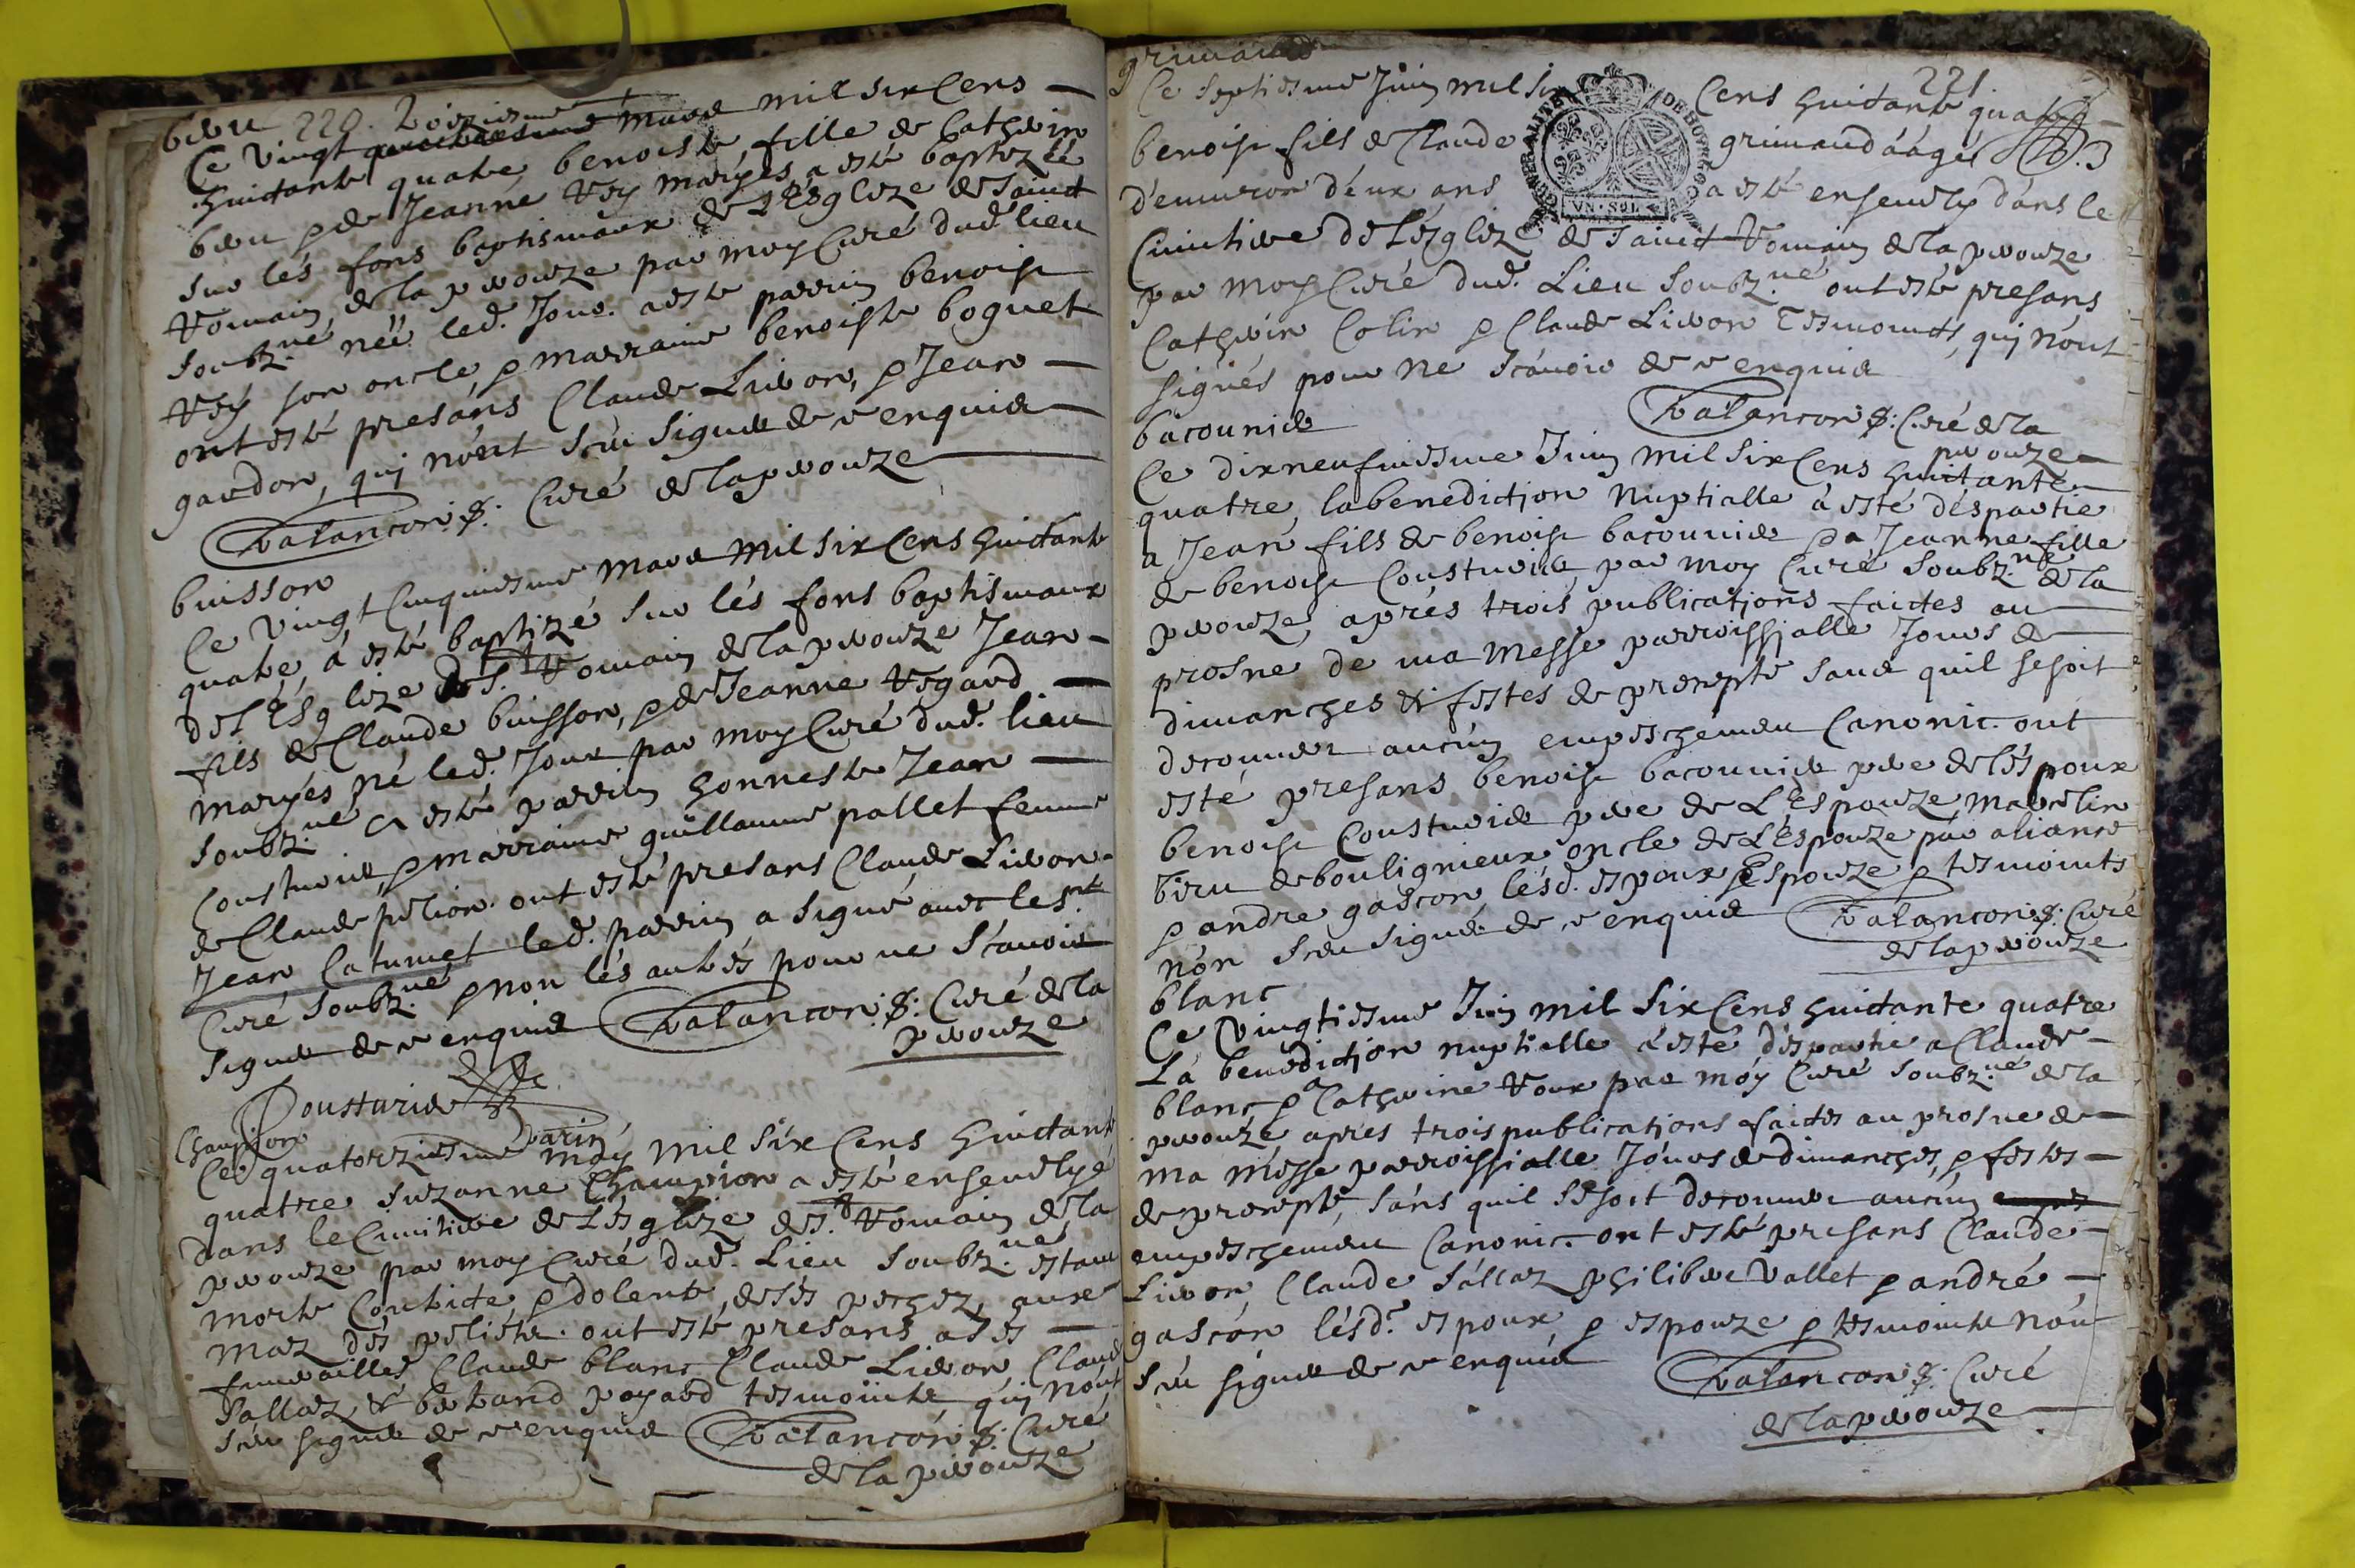 220. troiziesme
Ce vingt mars mil six Cens
huictante quatre benoiste fille de Catherin
beru & de Jeanne Rey maryés a esté baptizée
sur lés fons baptismaux de l'Esglize de sainct
Romain de la perouze par moy Curé dud. lieu
soubz.né née led. Jour. a esté parrin benoist
Rey son oncle, & marraine benoiste boguet
ont esté presans Claude Livon, & Jean
gardon, quj nónt sceu signer de ce enquis
Valancon p: Curé de la perouze
buisson
Ce vingt Cinquiesme mars mil six Cens huictante
quatre, á esté baptizé sur lés fons baptismaux
de l'Esglize de S.t Romain de la perouze Jean
fils de Claude buisson, & de Jeanne Regard
maryés né led. Jour par moy Curé dud. lieu
soubz.né a esté parrin honneste Jean
Cousturier, & marraine guillaume pallet femme
de Claude ont esté presans Claude Livon
Jean Catumet led. parrin a signé avec les.nt
Curé soubz.né & non lés autrés pour ne sçavoir
signer de ce enquis Valancon p: Curé de la
perouze
Cousturier
parin
Champion
Ce quatorziesme may mil six Cens huictante
quatre suzanne Champion a esté ensevelye
dans le Cimitiere de L'ésglize de S.t Romain de la
perouze par moy Curé dud. Lieu soubz.né estant
morte Contricte, & dolente de sés pechez,
ont esté presans a ses
funerailles Claude blanc Claude Livon, Claude
Sallaz & bertrand poyard tesmoints quj nónt
sceu signer de ce enquis Valancon p: Curé
de la perouze
grimaud
221
Ce septiesme Juin mil six Cens huictante quatre
benoist fils de Claude grimaud áágé
d'environ déux ans a esté ensevely dáns le
Cimitiere de L'ésglize de sainct Romain de la perouze
par moy Curé dud. Lieu soubz.né ont esté presans
Catherin Colin & Claude Livon Tesmoints, quj nónt
signés pour ne sçavoir de ce enquis
Valancon p: Curé de la
perouze
bacounier
Ce dixneufviesme Juin mil six Cens huictante
quatre, la benedictjon nuptialle á esté déspartie
a Jean fils de benoist bacounier & a Jeanne fille
de benoist Cousturier par moy Curé soubz.né de la
perouze, aprés trois publicatjons faictes au
prosne de ma messe parroissjalle Jours de
dimanches & festes de precepte sans quil se soit
decouvert aucun empeschement Canonic. ont
esté presans benoist bacounier pere de lés poux
benoist Cousturier pere de L'Espouze marcelin
beru de boulignieux oncle de L'Espouze par aliance
& andre gascon, lésd. espoux & Espouze & tesmoints
nón sceu signer de ce enquis Valancon p: Curé
de la perouze
blanc
Ce vingtiesme Juin mil six Cens huictante quatre
La benedictjon nuptialle á esté déspartie a Claude
blanc & a Catherine Roux par móy Curé soubz.né de la
perouze, aprés trois publicatjons faictes au prosne de
ma messe parroissjalle Jóurs de dimanches, & festes
de precepte, sáns quil se soit decouvert aucun
empeschement Canonic. ont esté presans Claude
Livon, Claude Sállaz philibert Vallet & andré
gascon lésd. espoux & espouze & tesmoints nón
sceu signer de ce enquis Valancon p: Curé
de la perouze
VN·SOL